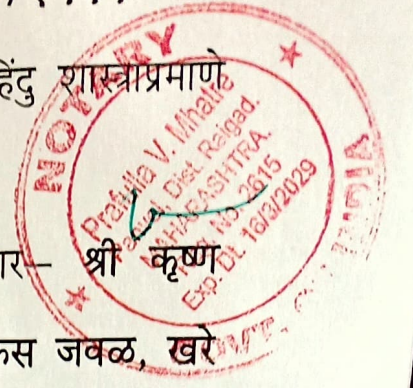 हिंदु शास्त्राप्रमाणे
श्री कृष्ण
जवळ, खरे
NOTARY
Prafulla V. Mhatre
Dist. Raigad.
MAHARASHTRA.
Reg. No. 2615
Exp. Dt. 16/3/2029